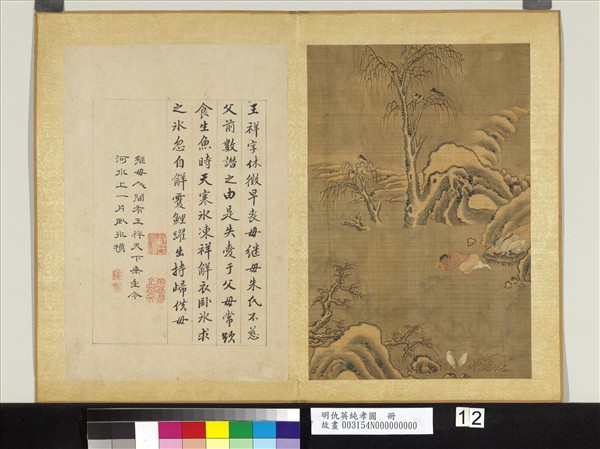 王祥字休徵早喪母繼母朱氏不慈
父前數譖之由是失愛于父母常欲
食生魚時天寒氷凍祥解衣卧氷求
之氷忽自解雙鯉躍出持歸供母
繼母人間有王祥天下無至今
河水上一片卧氷模
明仇英純孝圖 冊
故畫 003154N000000000
12